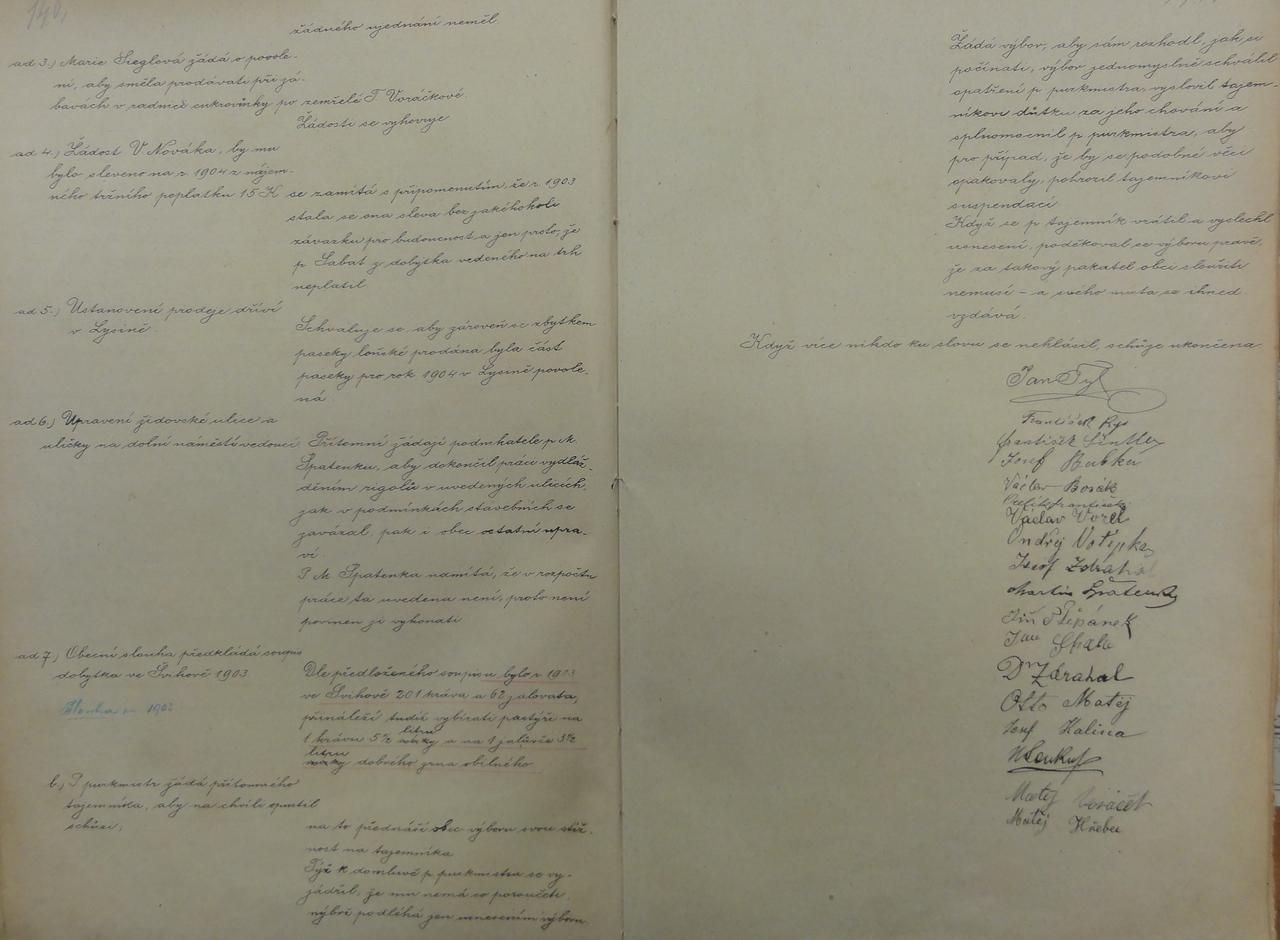 140,
žádného ujednání neměl.
ad 3.) Marie Sieglová žádá o povole-
ní, aby směla prodávati při zá-
bavách v radnici cukrovinky po zemřelé T. Voráčkové.
Žádosti se vyhovuje
ad 4.) Žádost V. Nováka, by mu
bylo sleveno na r. 1904 z nájem-
ného tržního poplatku 15 K se zamítá s připomenutím, že r. 1903
stala se ona sleva bez jakéhokoli
závazku pro budoucnost a jen proto, že
p. Sabat z dobytka vedeného na trh
neplatil
ad 5.) Ustanovení prodeje dříví
v Lysině.
Schvaluje se, aby zároveň se zbytkem
paseky loňské prodána byla část
paseky pro rok 1904 v Lysině povole-
ná.
ad 6.) Upravení židovské ulice a
uličky na dolní náměstí vedoucí Přítomní žádají podnikatele p. M.
Špatenku, aby dokončil práci vydláž-
děním rigolů v uvedených ulicích,
jak v podmínkách stavebních se
zavázal, pak i obec ostatní upra-
ví.
P. M. Špatenka namítá, že v rozpočtu
práce ta uvedena není, proto není
povinen ji vykonati
ad 7.) Obecní slouha předkládá soupis
dobytka ve Švihově 1903
Slouha r. 1903
Dle předloženého soupisu bylo r. 1903
ve Švihově 201 kráva a 62 jalovata,
přináleží tudíž vybírati pastýři na
1 krávu 5½ litru a na 1 jalůvče 3½
litru dobrého zrna obilného.
b.) P. purkmistr žádá přítomného
tajemníka, aby na chvíli opustil
schůzi,
na to přednáší obec. výboru svou stíž-
nost na tajemníka
Týž k domluvě p. purkmistra se vy-
jádřil, že mu nemá co poroučeti
nýbrž podléhá jen usnesením výboru
Žádá výbor, aby sám rozhodl, jak si
počínati, výbor jednomyslně schválil
opatření p. purkmistra, vyslovil tajem-
níkovi důtku za jeho chování a
splnomocnil p. purkmistra, aby
pro případ, že by se podobné věci
opakovaly, pohrozil tajemníkovi
suspendací
Když se p. tajemník vrátil a vyslechl
usnesení, poděkoval se výboru pravě,
že za takový pakatel obci sloužiti
nemusí – a svého místa se ihned
vzdává.
Když více nikdo ku slovu se nehlásil, schůze ukončena
Jan Tyl
František Rys
František Šintler
Josef Bubka
Václav Borák
Václav Vozel
Ondřej Votýpka
Josef Zdrahal
Martin
Jiří Štěpánek
Jan
Dr Zdrahal
Otto Matěj
Josef Kalina
Matěj
Matěj